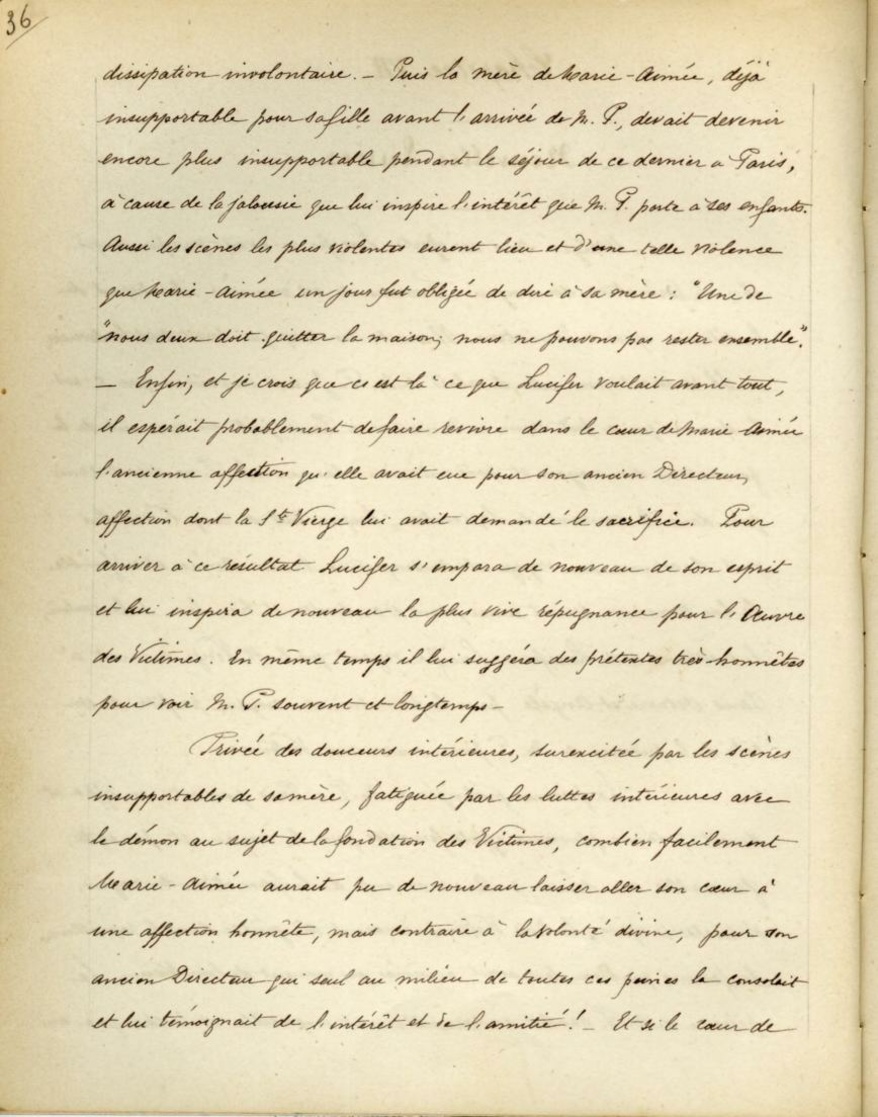 36
dissipation involontaire. — Puis la mère de Marie-Aimée, déjà
insupportable pour sa fille avant l'arrivée de M. P., devait devenir
encore plus insupportable pendant le séjour de ce dernier à Paris,
à cause de la jalousie que lui inspire l'intérêt que M. P. porte à ses enfants.
Aussi les scènes les plus violentes eurent lieu et d'une telle violence
que Marie-Aimée un jour fut obligée de dire à sa mère : "Une de
"nous deux doit quitter la maison; nous ne pouvons pas rester ensemble".
— Enfin, et je crois que c'est là ce que Lucifer voulait avant tout,
il espérait probablement de faire revivre dans le cœur de Marie-Aimée
l'ancienne affection qu'elle avait eue pour son ancien Directeur,
affection dont la Ste Vierge lui avait demandé le sacrifice. Pour
arriver à ce résultat Lucifer s'empara de nouveau de son esprit
et lui inspira de nouveau la plus vive répugnance pour l'Œuvre
des Victimes. En même temps il lui suggéra des prétextes très-honnêtes
pour voir M. P. souvent et longtemps —
Privée des douceurs intérieures, surexcitée par les scènes
insupportables de sa mère, fatiguée par les luttes intérieures avec
le démon au sujet de la fondation des Victimes, combien facilement
Marie-Aimée aurait pu de nouveau laisser aller son cœur à
une affection honnête, mais contraire à la volonté divine, pour son
ancien Directeur qui seul au milieu de toutes ces peines la consolait
et lui témoignait de l'intérêt et de l'amitié! — Et si le cœur de